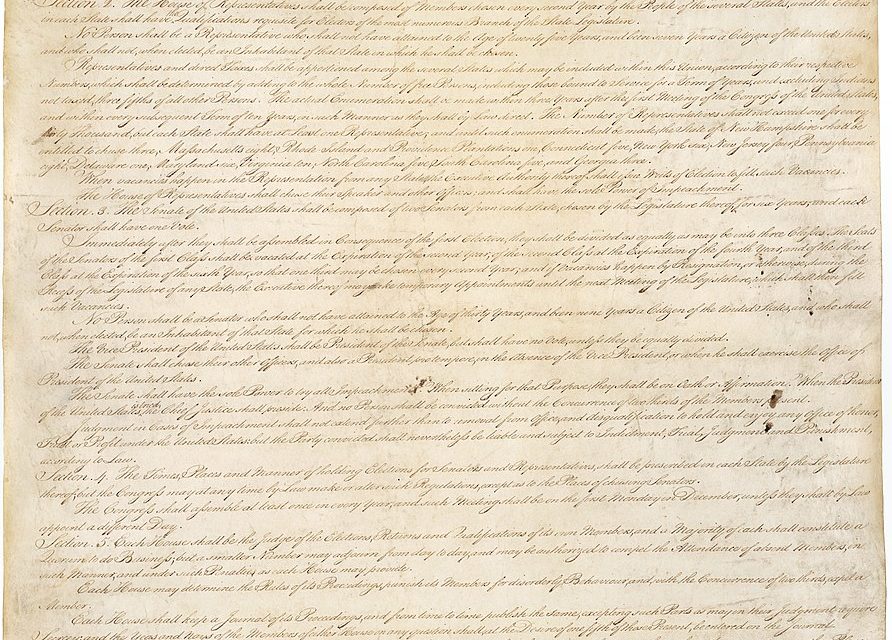 Section. 2. The House of Representatives shall be composed of Members chosen every second Year by the People of the several States, and the Electors
in each State shall have the Qualifications requisite for Electors of the most numerous Branch of the State Legislature.
No Person shall be a Representative who shall not have attained to the Age of twenty five Years, and been seven Years a Citizen of the United States,
and who shall not, when elected, be an Inhabitant of that State in which he shall be chosen.
Representatives and direct Taxes shall be apportioned among the several States which may be included within this Union, according to their respective
Numbers, which shall be determined by adding to the whole Number of free Persons, including those bound to Service for a Term of Years, and excluding Indians
not taxed, three fifths of all other Persons. The actual Enumeration shall be made within three Years after the first Meeting of the Congress of the United States,
and within every subsequent Term of ten Years, in such Manner as they shall by Law direct. The Number of Representatives shall not exceed one for every
thirty Thousand, but each State shall have at Least one Representative; and until such enumeration shall be made, the State of New Hampshire shall be
entitled to chuse three, Massachusetts eight, Rhode Island and Providence Plantations one, Connecticut five, New York six, New Jersey four, Pennsylvania
eight, Delaware one, Maryland six, Virginia ten, North Carolina five, South Carolina five, and Georgia three.
When vacancies happen in the Representation from any State, the Executive Authority thereof shall issue Writs of Election to fill such Vacancies.
The House of Representatives shall chuse their Speaker and other Officers; and shall have the sole Power of Impeachment.
Section. 3. The Senate of the United States shall be composed of two Senators from each State, chosen by the Legislature thereof, for six Years; and each
Senator shall have one Vote.
Immediately after they shall be assembled in Consequence of the first Election, they shall be divided as equally as may be into three Classes. The Seats
of the Senators of the first Class shall be vacated at the Expiration of the second Year, of the second Class at the Expiration of the fourth Year, and of the third
Class at the Expiration of the sixth Year, so that one third may be chosen every second Year; and if Vacancies happen by Resignation, or otherwise, during the
Recess of the Legislature of any State, the Executive thereof may make temporary Appointments until the next Meeting of the Legislature, which shall then fill
such Vacancies.
No Person shall be a Senator who shall not have attained to the Age of thirty Years, and been nine Years a Citizen of the United States, and who shall
not, when elected, be an Inhabitant of that State for which he shall be chosen.
The Vice President of the United States shall be President of the Senate, but shall have no Vote, unless they be equally divided.
The Senate shall chuse their other Officers, and also a President pro tempore, in the Absence of the Vice President, or when he shall exercise the Office of
President of the United States.
The Senate shall have the sole Power to try all Impeachments. When sitting for that Purpose, they shall be on Oath or Affirmation. When the President
of the United States is tried, the Chief Justice shall preside: And no Person shall be convicted without the Concurrence of two thirds of the Members present.
Judgment in Cases of Impeachment shall not extend further than to removal from Office, and disqualification to hold and enjoy any Office of honor,
Trust or Profit under the United States: but the Party convicted shall nevertheless be liable and subject to Indictment, Trial, Judgment and Punishment,
according to Law.
Section. 4. The Times, Places and Manner of holding Elections for Senators and Representatives, shall be prescribed in each State by the Legislature
thereof; but the Congress may at any time by Law make or alter such Regulations, except as to the Places of chusing Senators.
The Congress shall assemble at least once in every Year, and such Meeting shall be on the first Monday in December, unless they shall by Law
appoint a different Day.
Section. 5. Each House shall be the Judge of the Elections, Returns and Qualifications of its own Members, and a Majority of each shall constitute a
Quorum to do Business; but a smaller Number may adjourn from day to day, and may be authorized to compel the Attendance of absent Members, in
such Manner, and under such Penalties as each House may provide.
Each House may determine the Rules of its Proceedings, punish its Members for disorderly Behaviour, and, with the Concurrence of two thirds, expel a
Member.
Each House shall keep a Journal of its Proceedings, and from time to time publish the same, excepting such Parts as may in their Judgment require
Secrecy; and the Yeas and Nays of the Members of either House on any question shall, at the Desire of one fifth of those Present, be entered on the Journal.